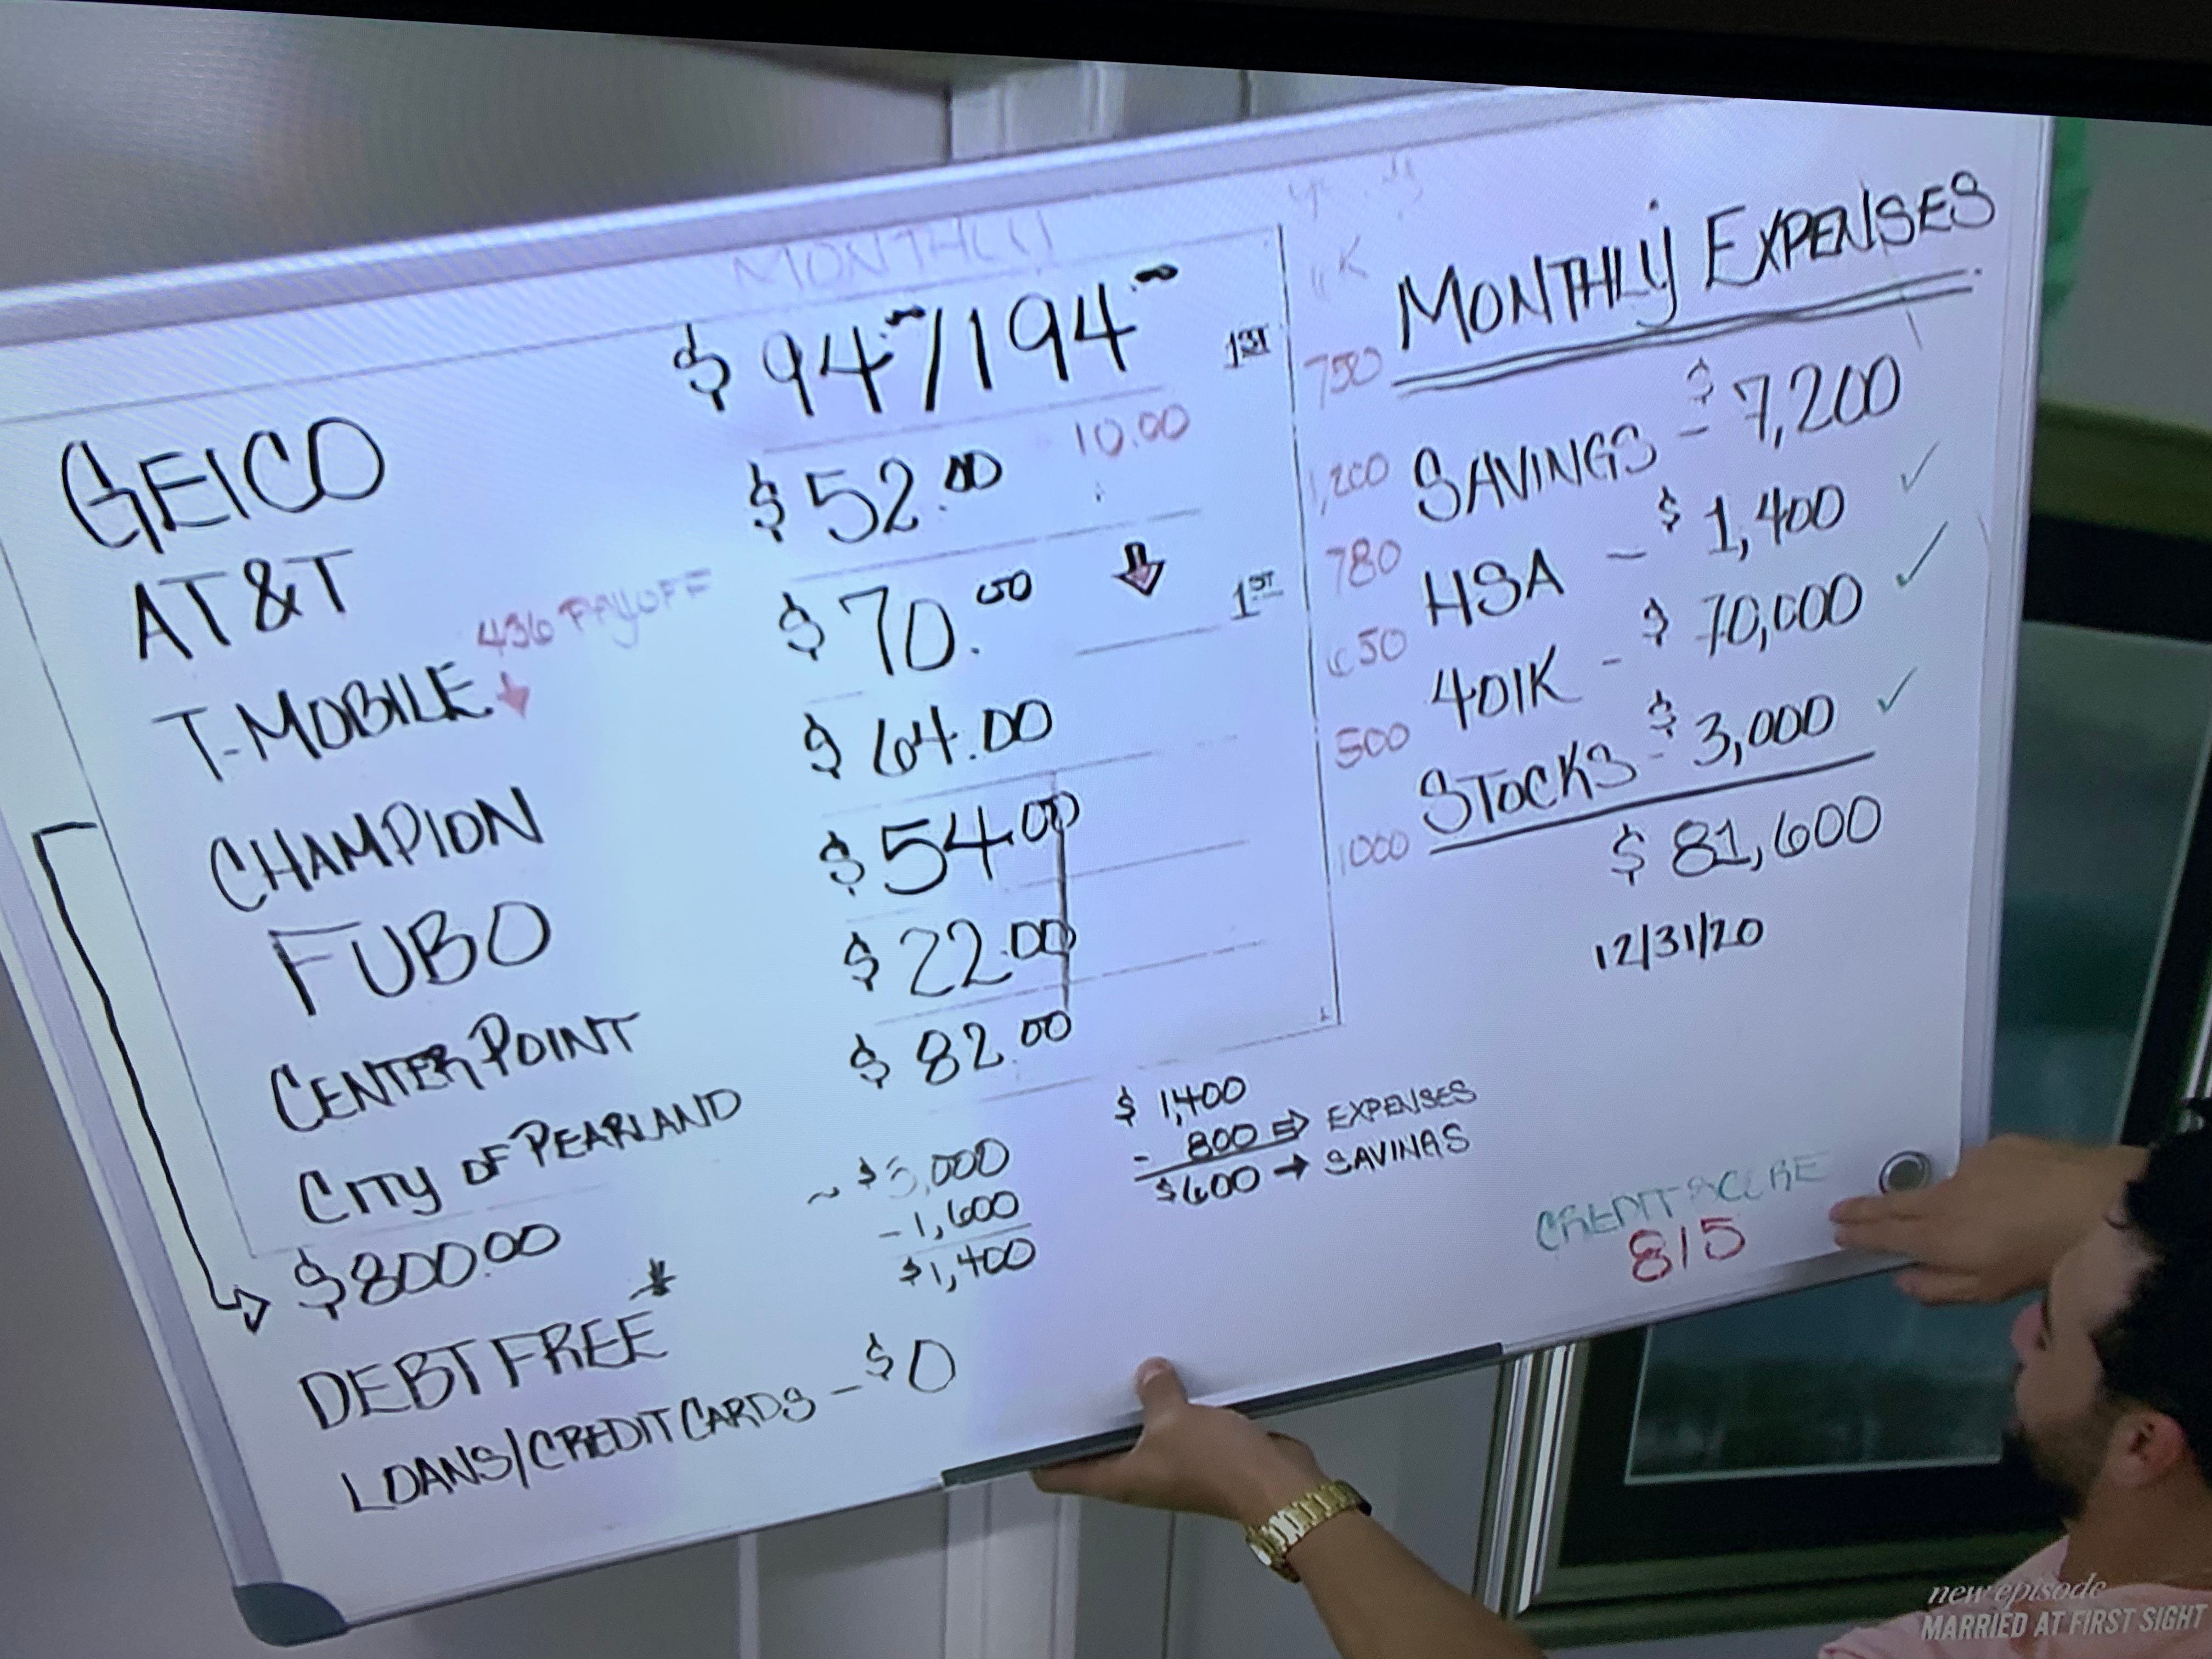 MONTHLY
GEICO $94/194 1ST
AT&T $52.00 10.00
T-MOBILE 436 PAYOFF $70.00 1ST
CHAMPION $64.00
FUBO $54.00
CENTERPOINT $22.00
CITY OF PEARLAND $82.00
$800.00
DEBT FREE*
LOANS/CREDIT CARDS - $0
~ $3,000
-1,600
$1,400
$ 1,400
- 800 ⇒ EXPENSES
$600 → SAVINGS
750
1,200
780
650
500
1000
MONTHLY EXPENSES
SAVINGS - $7,200
HSA - $1,400 ✓
401K - $70,000 ✓
STOCKS - $3,000 ✓
$81,600
12/31/20
CREDIT SCORE
815
new episode
MARRIED AT FIRST SIGHT